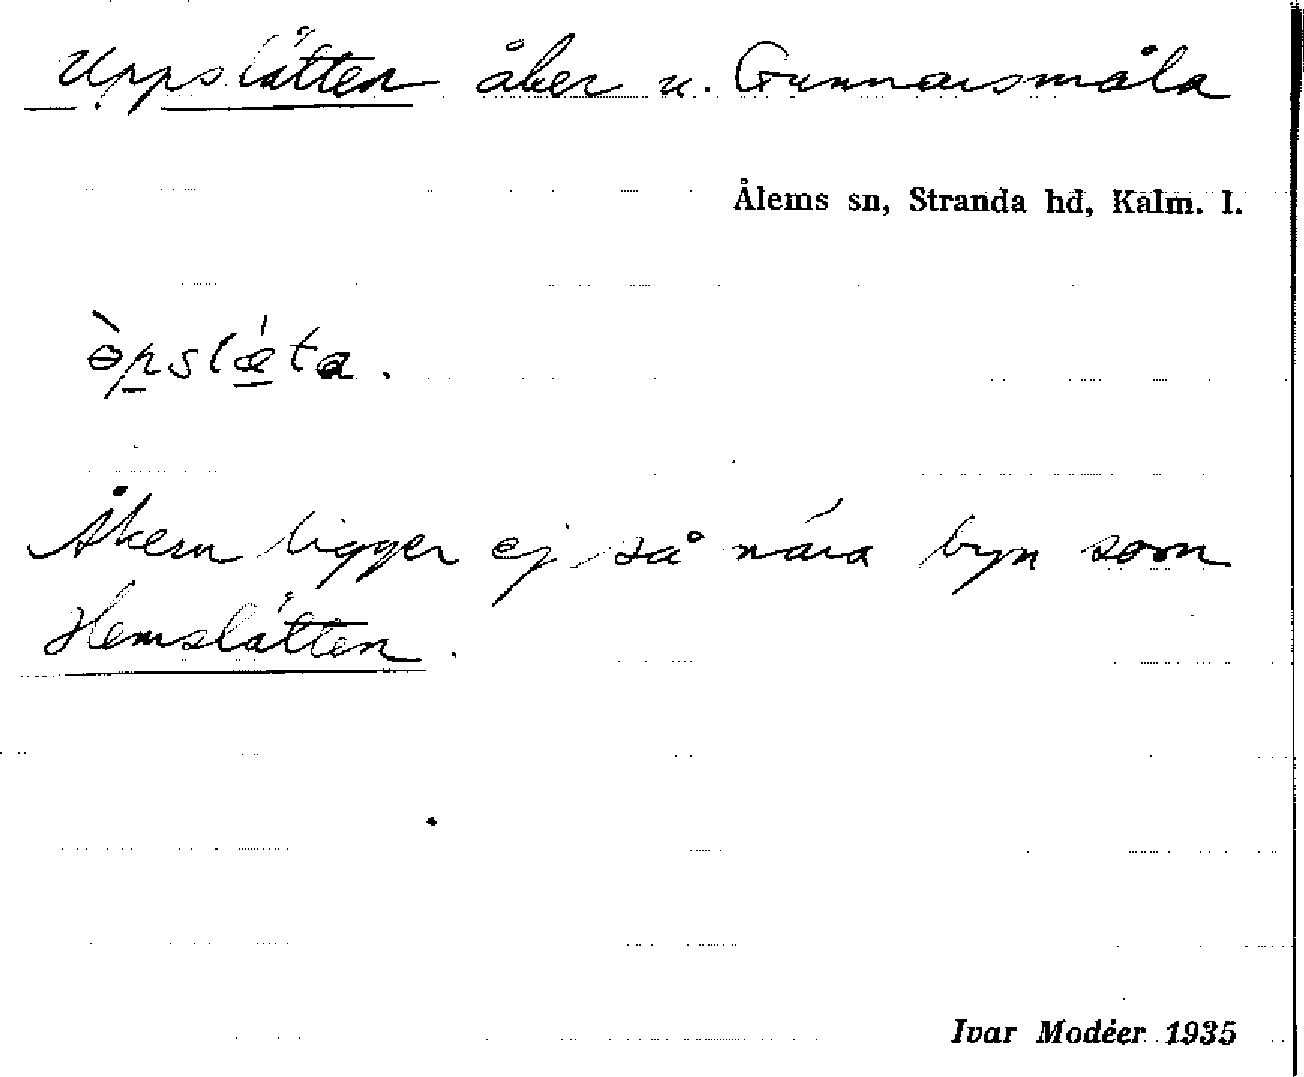 Uppslätten åker u. Gunnarsmåla
Ålems sn, Stranda hd, Kalm. l.
Åkern ligger ej så nära byn som
Hemslätten.
Ivar Modéer 1935